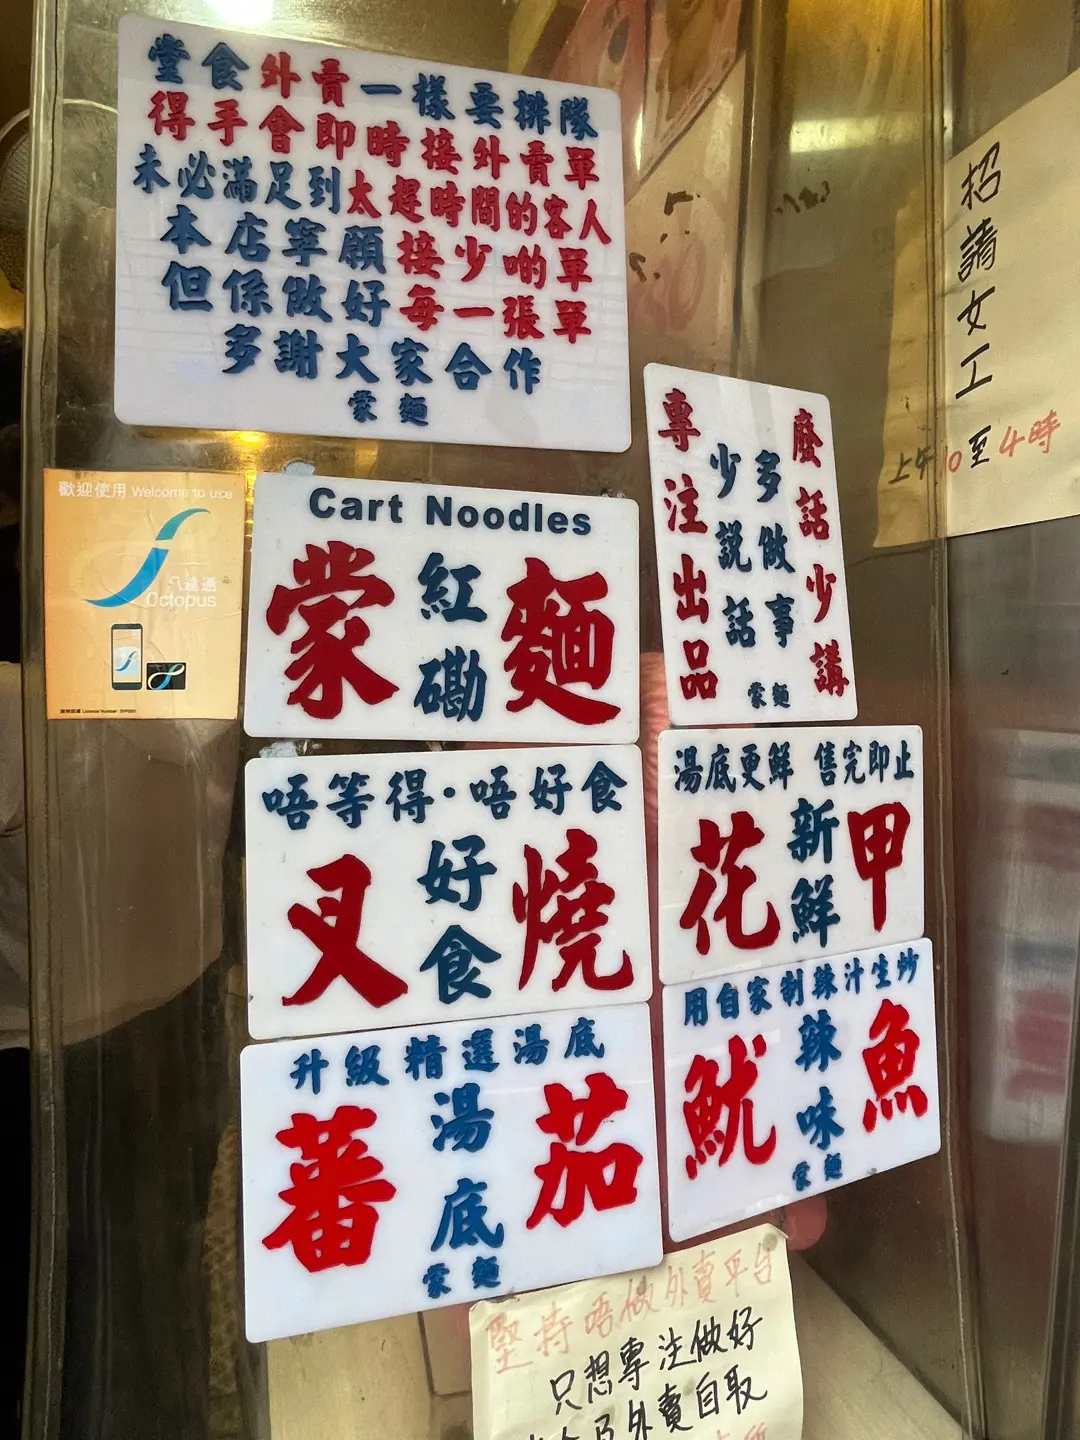 堂食外賣一樣要排隊
得手會即時接外賣單
未必滿足到太趕時間的客人
本店寧願接少啲單
但係做好每一張單
多謝大家合作
蒙麵
招請女工
上午10至4時
歡迎使用 Welcome to use
八達通
Octopus
Cart Noodles
蒙麵
紅磡
廢話少講
多做事
少説話
專注出品
蒙麵
唔等得·唔好食
叉燒
好食
湯底更鮮 售完即止
花甲
新鮮
升級精選湯底
蕃茄
湯底
蒙麵
用自家制辣汁生炒
魷魚
辣味
蒙麵
堅持唔做外賣平台
只想專注做好
外賣自取